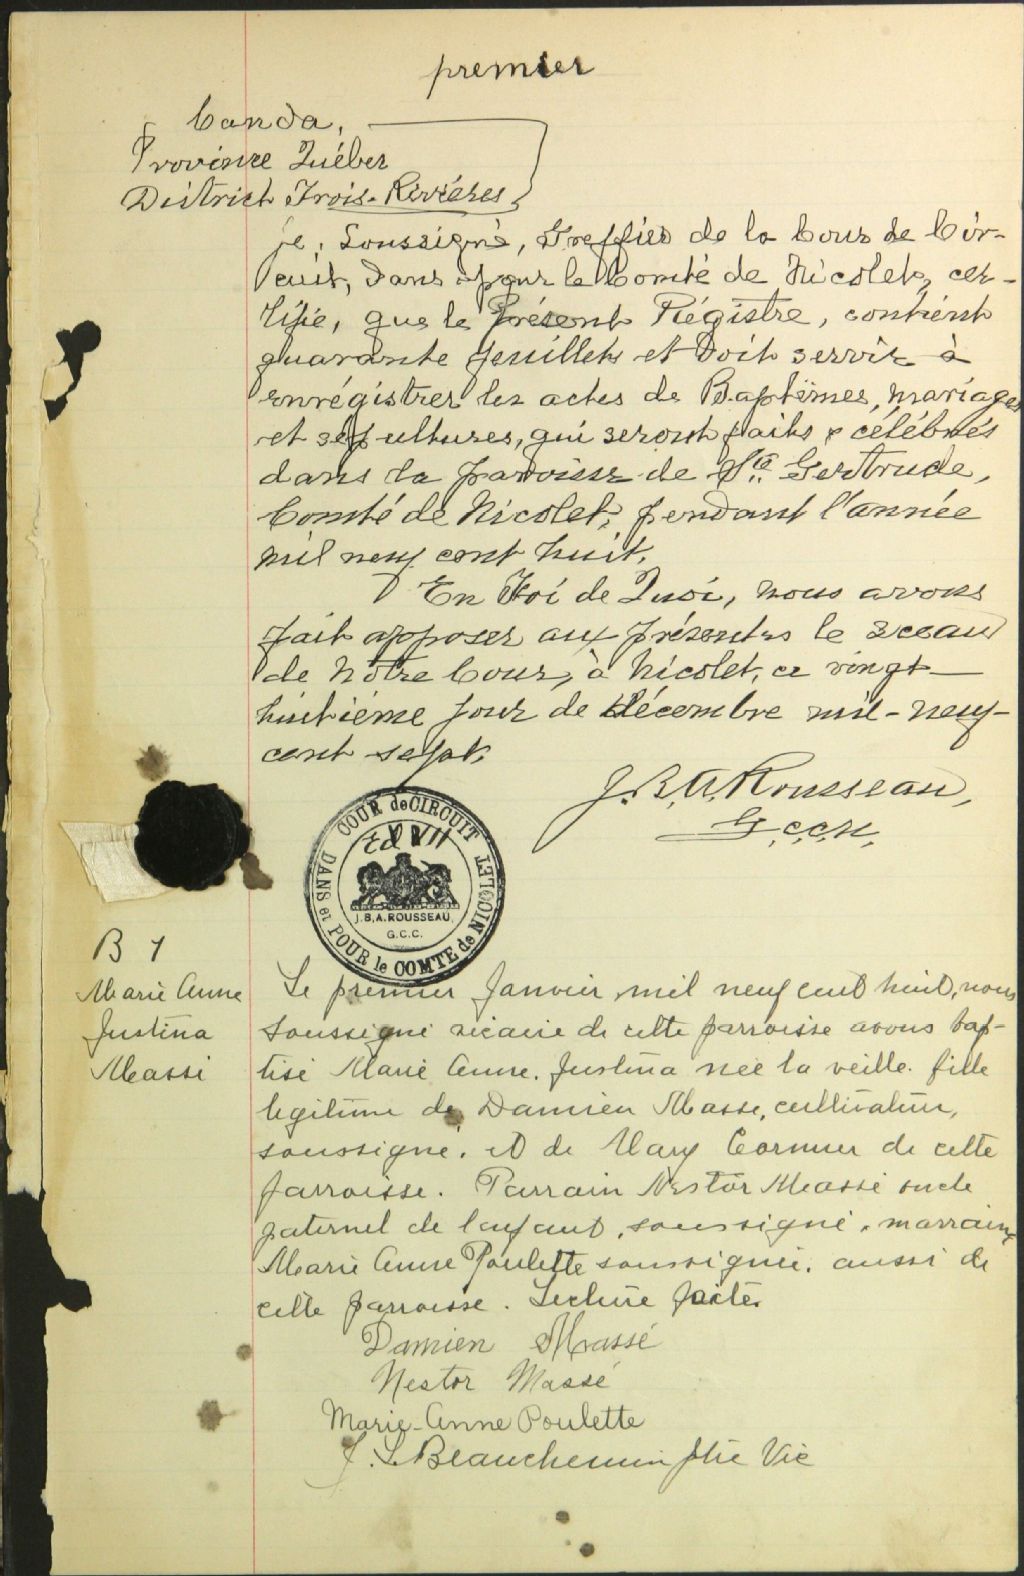 premier
Canda,
Province Québec
District Trois-Rivières
je, Soussigné, Greffier de la Cour de Cir-
cuit, dans & pour le Comté de Nicolet, cer-
tifie, que le Présent Régistre, contient
quarante feuillets et doit servir à
enrégistrer les actes de Baptêmes, mariages
et sépultures, qui seront faits & célébrés
dans la paroisse de Ste Gertrude,
Comté de Nicolet, pendant l'année
mil neuf cent huit.
En Foi de Quoi, nous avons
fait apposer aux présentes le sceau
de Notre Cour, à Nicolet, ce vingt-
huitième jour de décembre mil-neuf-
cent sept.
J.B.A. Rousseau,
G.C.C.N.
COUR de CIRCUIT
DANS et POUR le COMTE de NICOLET
Ed VII
J.B.A. ROUSSEAU,
G.C.C.
B 1
Marie Anne
Justina
Massé
Le premier Janvier mil neuf cent huit, nous
soussigné vicaire de cette parroisse avons bap-
tisé Marie Anne. Justina née la veille. fille
légitime de Damien Masse, cultivateur,
soussigné. et de Mary Cormier de cette
parroisse. Parrain Nestor Massé oncle
paternel de l'enfant, soussigné, marraine
Marie Anne Poulette soussignée. aussi de
cette parroisse. Lecture faite.
Damien Massé
Nestor Massé
Marie-Anne Poulette
J. L. Beauchemin Ptre Vic